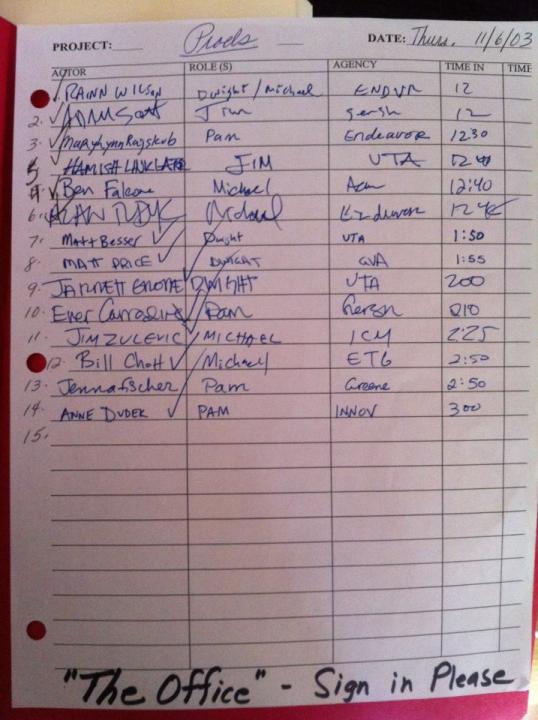 PROJECT: Prods DATE: Thurs. 11/6/03
ACTOR ROLE(S) AGENCY TIME IN TIME
RAINN WILSON Dwight/Michael ENDVR 12
2. ADAM Scott Jim Gersh 12
3. MaryLynn Rajskub Pam Endeavor 1230
5 HAMISH LINKLATER JIM UTA
4. Ben Falcone Michael 12:40
6. ALAN TUDYK Michael Endeavor
7. MATT Besser Dwight UTA 1:50
8. MATT PRICE DWIGHT GVA 1:55
9. DWIGHT UTA 200
10. Ever Carradine Pam Gersh 210
11. JIM ZULEVIC MICHAEL ICM 2:25
12. Bill Chott Michael ETG 2:50
13. Jenna fischer Pam Greene 2:50
14. ANNE DUDEK PAM INNOV 300
15.
"The Office" - Sign in Please